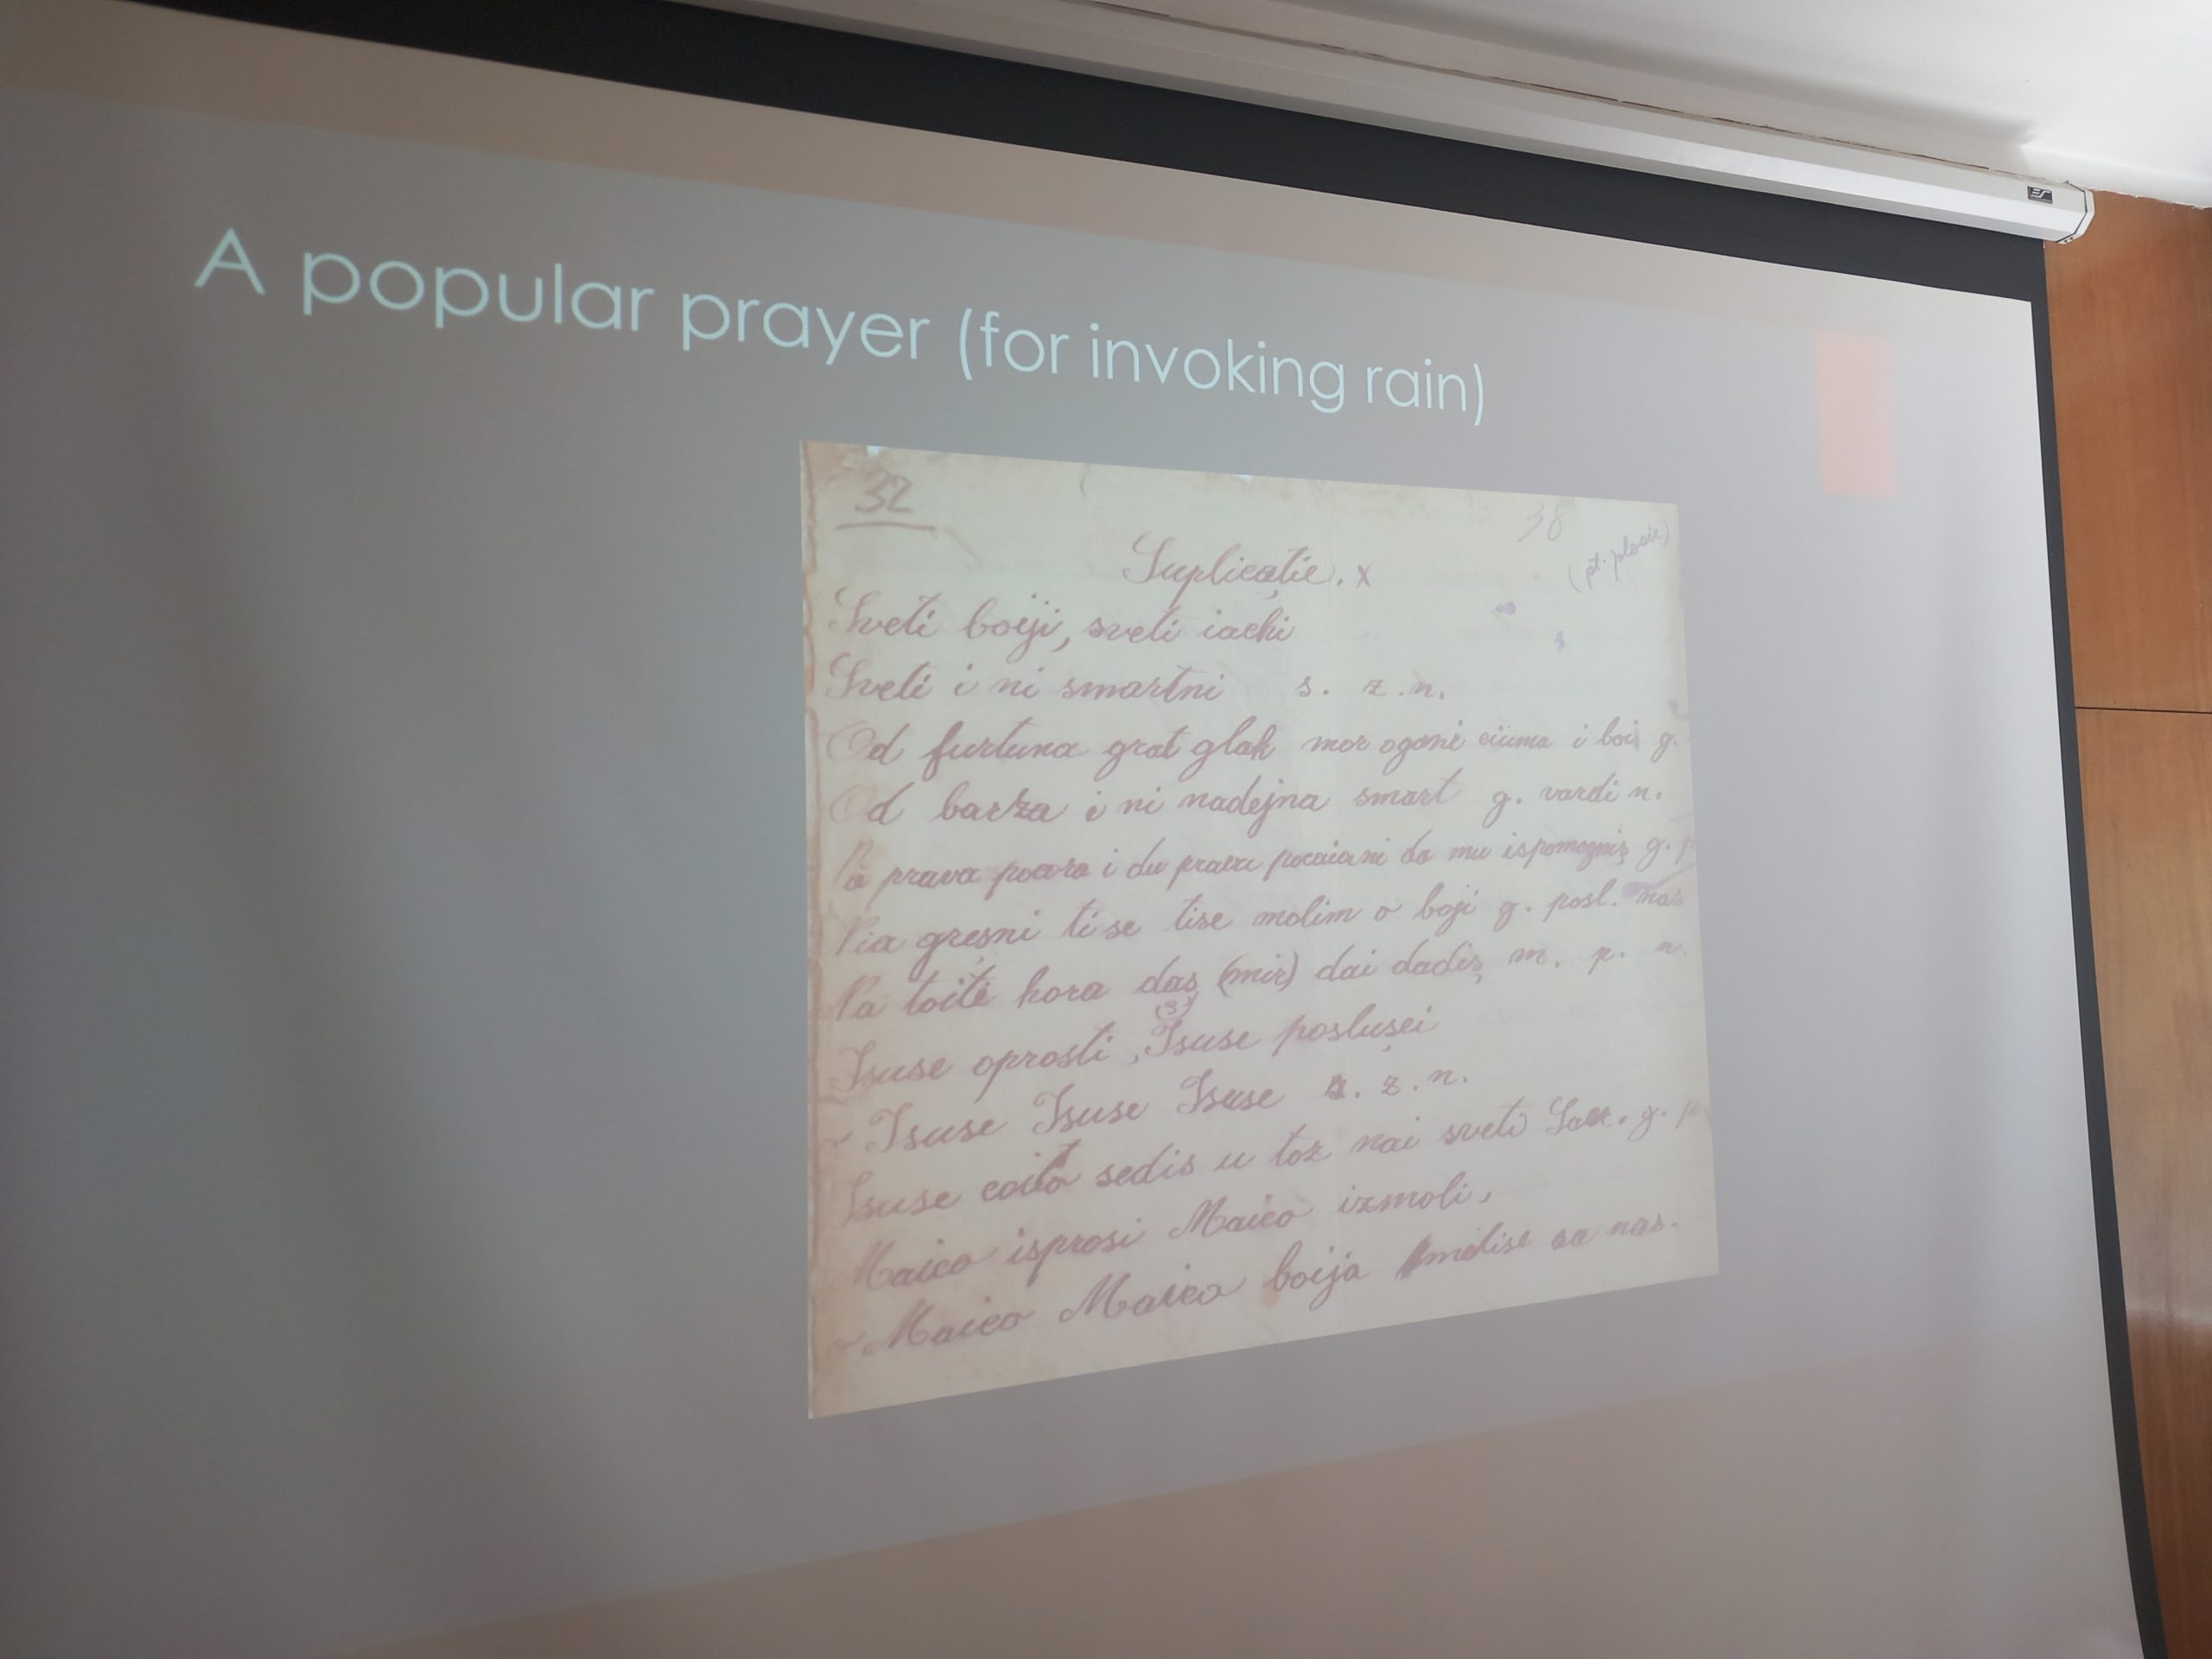 A popular prayer (for invoking rain)
32
38
(pt. ploaie)
Suplicație. x
Sveti boiji, sveti iachi
Sveti i ni smartni s. z. n.
Od furtuna grat glak mor ogani ciuma i boi g.
Od barza i ni nadejna smart g. vardi n.
prava i du prava pocaiani da mu ispomogniș g.
greșni ti se tise molim o boji g. posl. nas
Na toite hora daș (mir) dai dadiș m. p. n.
(3)
Isuse oprosti, Isuse poslușei
Isuse Isuse Isuse s. z. n.
Isuse coito sedis u toz nai sveti Sacr. g. p
Maico isprosi Maico izmoli,
Maico Maico boija molise za nas.